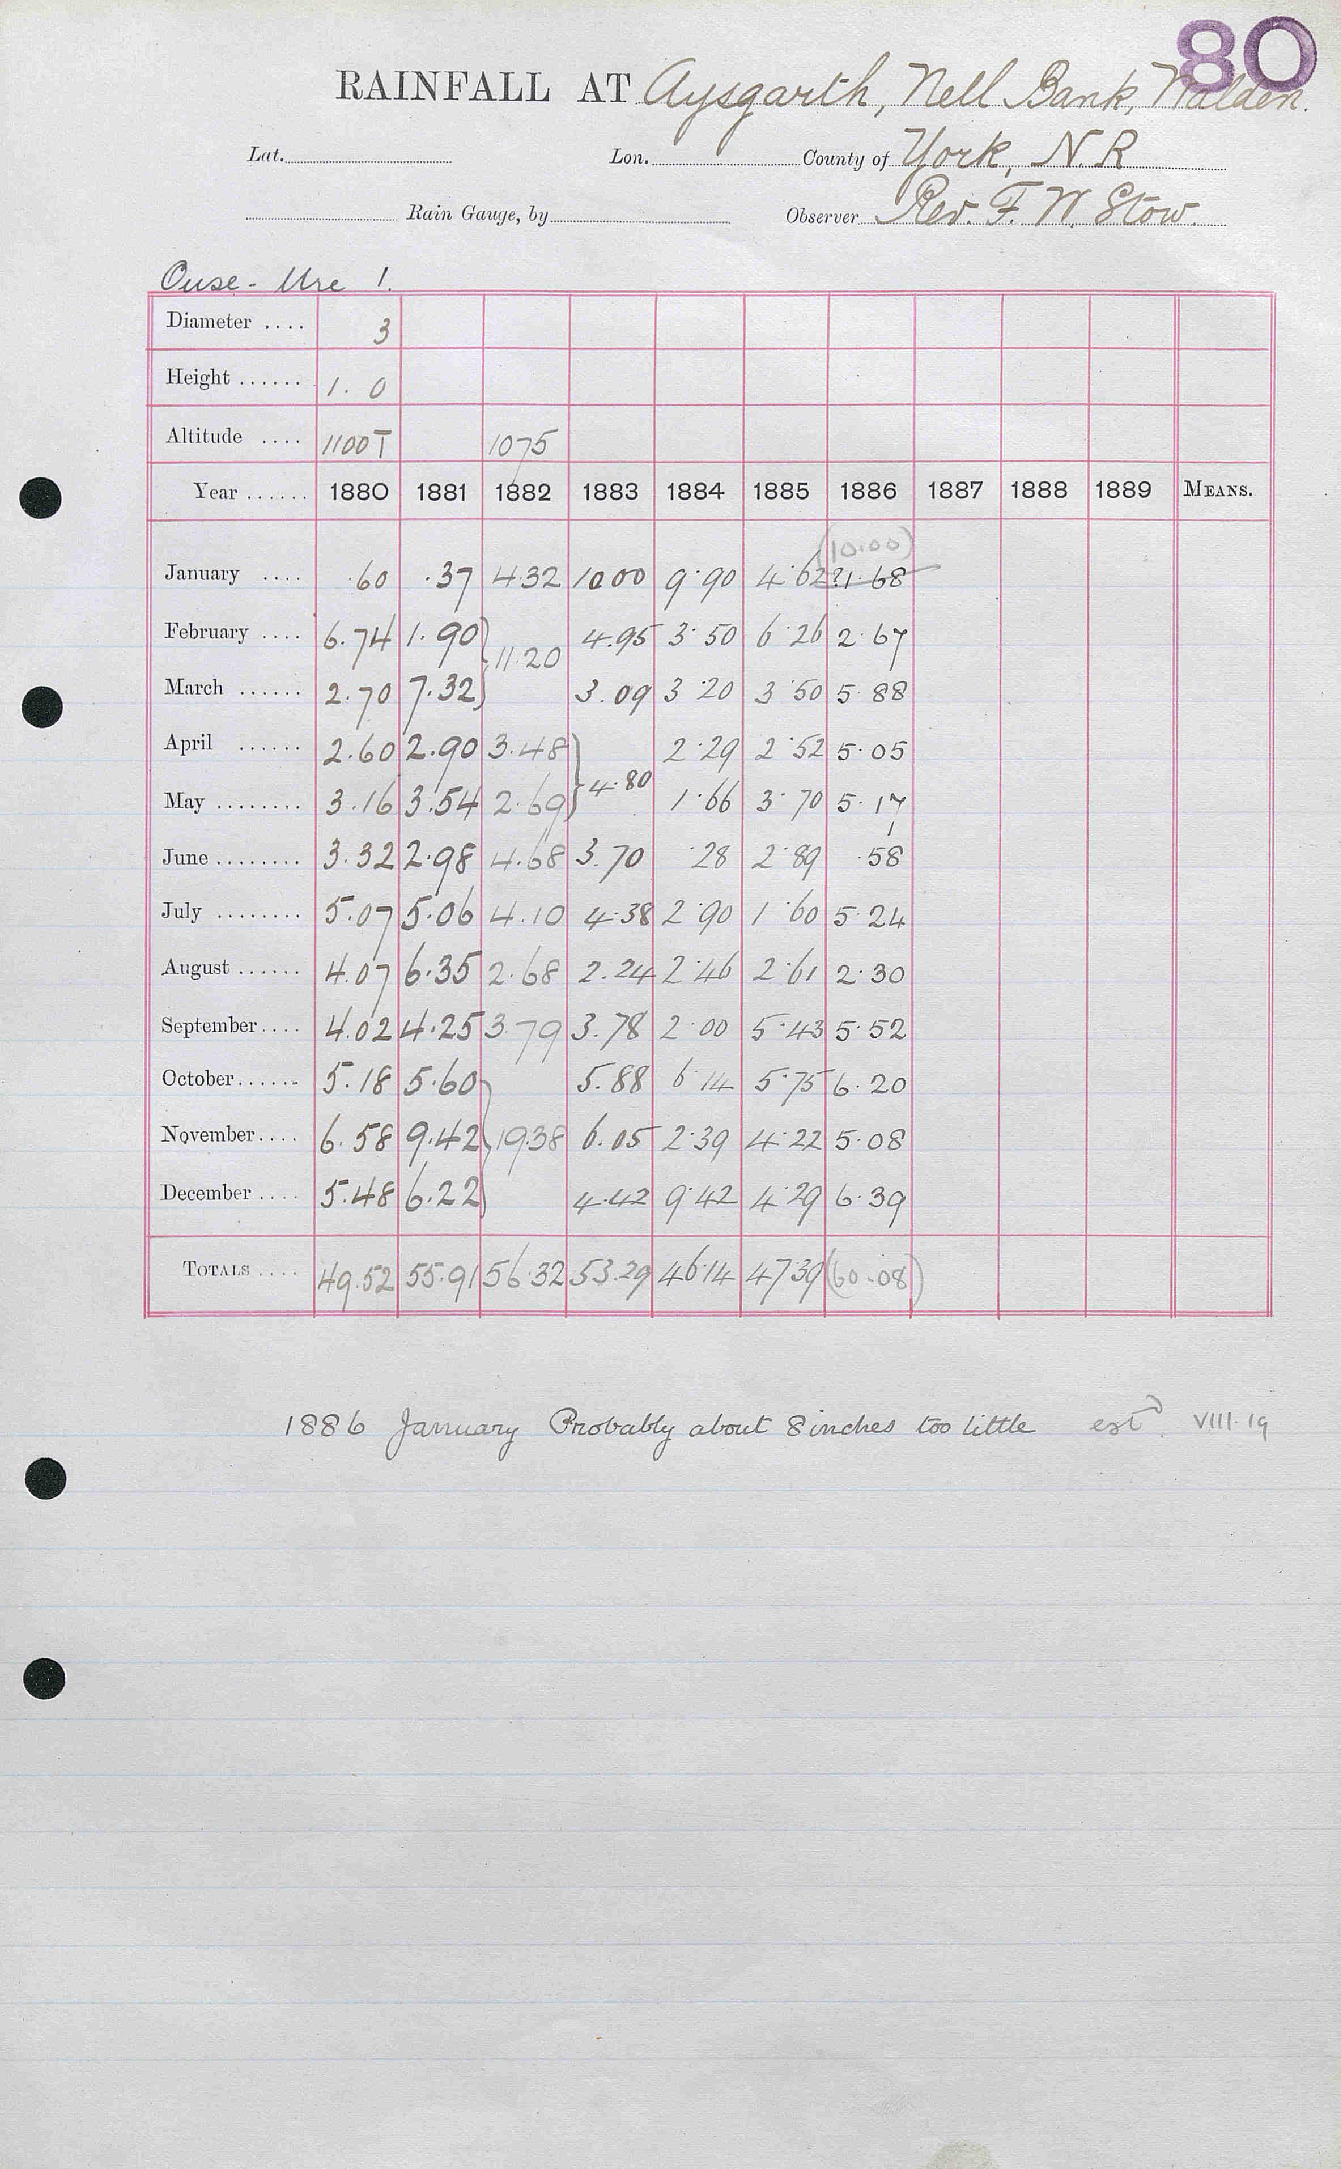 80
RAINFALL AT Aysgarth, Nell Bank, Walden.
Lat. Lon. County of York, N.R
Rain Gauge, by Observer Rev. F. W. Stow.
Ouse - Ure 1.
Diameter .... 3
Height ...... 1. 0
Altitude .... 1100T 1075
Year ...... 1880 1881 1882 1883 1884 1885 1886 1887 1888 1889 MEANS.
(10.00)
January .... .60 .37 4.32 10.00 9.90 4.62 ?1.68
February .... 6.74 1.90 } 11.20 4.95 3.50 6.26 2.67
March ...... 2.70 7.32 3.09 3.20 3.50 5.88
April ...... 2.60 2.90 3.48 } 4.80 2.29 2.52 5.05
May ........ 3.16 3.54 2.69 1.66 3.70 5.17
June ........ 3.32 2.98 4.68 3.70 .28 2.89 .58
July ........ 5.07 5.06 4.10 4.38 2.90 1.60 5.24
August ...... 4.07 6.35 2.68 2.24 2.46 2.61 2.30
September .... 4.02 4.25 3.79 3.78 2.00 5.43 5.52
October ...... 5.18 5.60 5.88 6.14 5.75 6.20
November .... 6.58 9.42 } 19.38 6.05 2.39 4.22 5.08
December .... 5.48 6.22 4.42 9.42 4.29 6.39
TOTALS .... 49.52 55.91 56.32 53.29 46.14 47.39 (60.08)
1886 January Probably about 8 inches too little estd. VIII.19